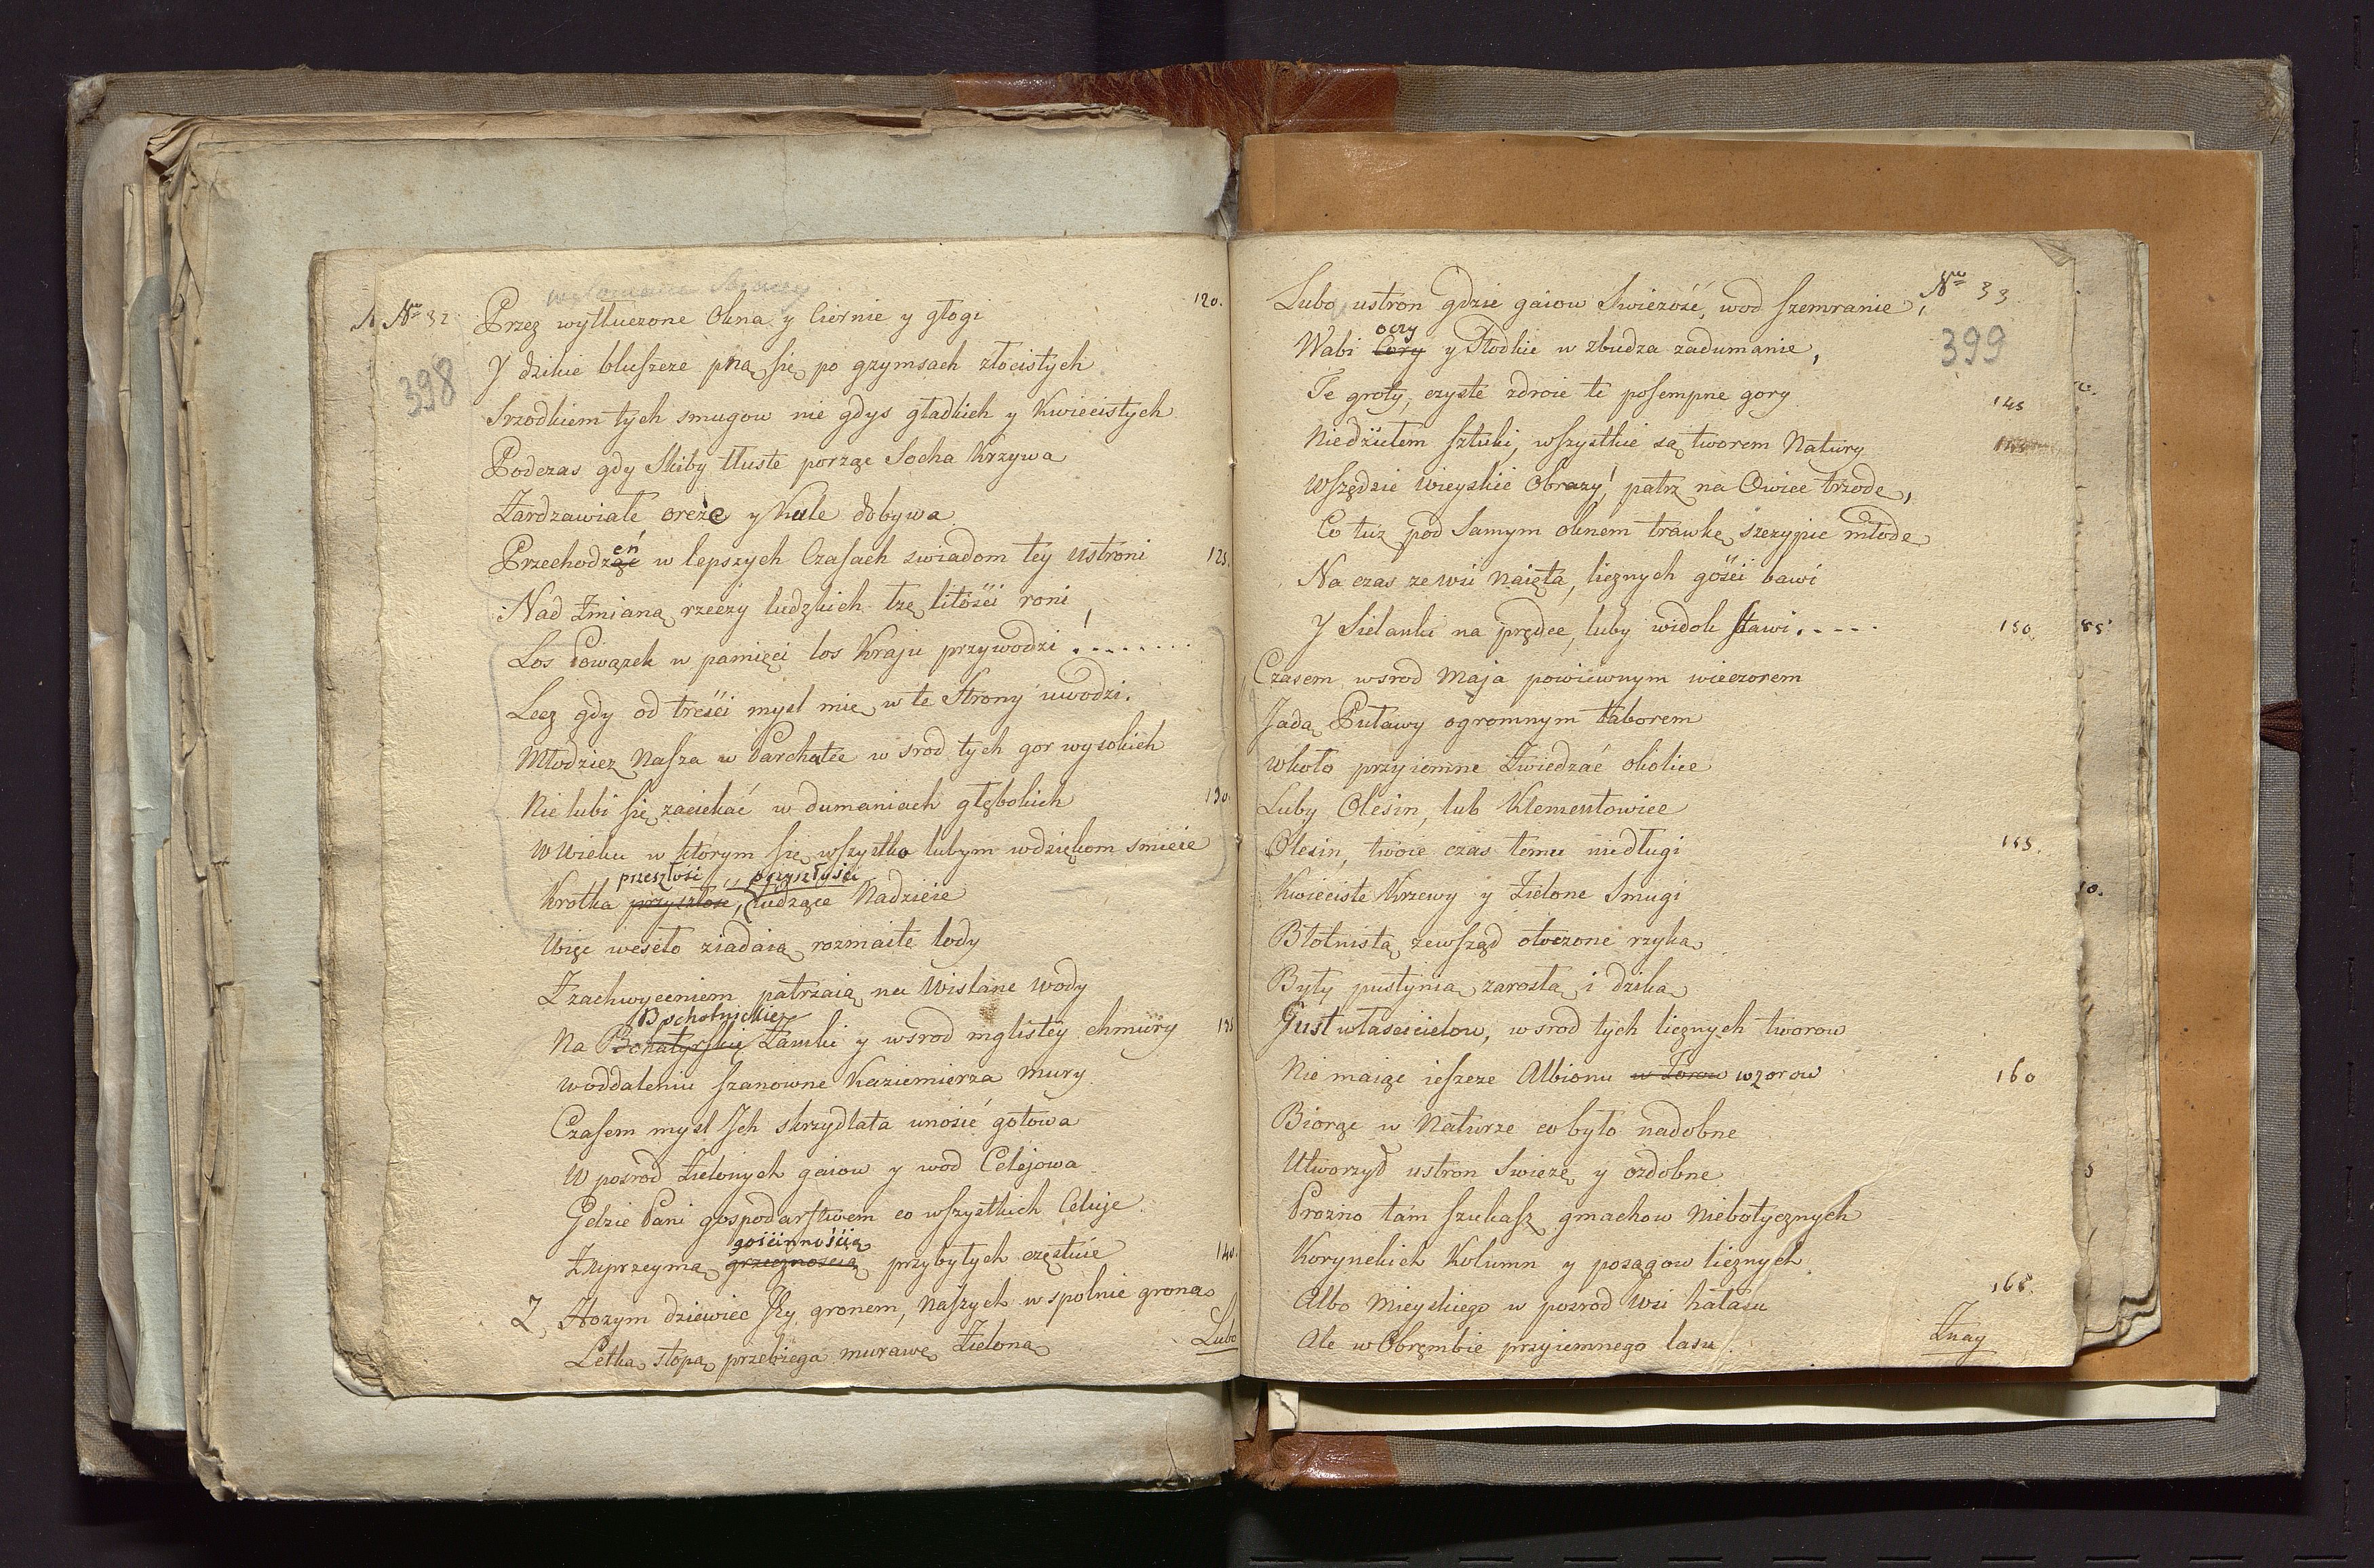 Nro 32
398
120.
Przez wytłuczone Okna y Ciernie y głogi
Y dzikie bluszcze pną się po gzymsach złocistych
Srzodkiem tych smugow nie gdys gładkich y Kwiecistych
Podczas gdy Skiby tłuste porząc Socha Krzywa
Zardzawiałe oręże y Kule dobywa
eń
Przechodząc w lepszych Czasach swiadom tey ustroni 125.
Nad Zmianą rzeczy ludzkich łzę litośći roni
Los Powązek w pamięci los Kraju przywodzi! . . . . . . .
Lecz gdy od treśći mysl mię w te Strony uwodzi.
Młodziez Nasza w Parchatce w srod tych gor wysokich
Nie lubi się zaciekać w dumaniach głębokich 130.
W Wieku w ktorym się wszystko lubym wdziękom smieie
przeszłość przyszłości
Krotka przyszłość, łudzące Nadzieie
Więc wesoło ziadaią rozmaite lody
Z zachwyceniem patrzaią na Wislane Wody
Bochotnickie
Na Bohatyrskie Zamki y wsrod mglistey chmury 135
Woddaleniu szanowne Kazimierza Mury
Czasem mysl Ich skrzydlata unosić gotowa
W posrod Zielonych gaiow y wod Celejowa
Gdzie Pani gospodarstwem co wszystkich Celuje
gośćinnośćią
Zuprzeymą grzecznoscią przybyłych częstuie 140.
Z Hozym dziewiec Jey gronem, Naszych wspolnie grono
Letką stopą przebiega murawę Zieloną
Lubo
Nro 33
399
Lubo ustron gdzie gaiow Swiezość, wod szemranie,
oczy
Wabi Cory y Słodkie w zbudza zadumanie,
Te groty, czyste zdroie te posempne gory 145
Niedziełem sztuki, wszystkie są tworem Natury
Wszędzie wieyskie Obrazy! patrz na Owiec trzodę,
Co tuz pod Samym oknem trawkę szczypie młodę
Na czas ze wsi Naięta, licznych gośći bawi
Y Sielanki na prędce, luby widok stawi. . . . . 150
Czasem wsrod Maja powiewnym wieczorem
Jadą Puławy ogromnym taborem
Wkoło przyiemne Zwiedzać okolice
Luby Olesin, lub Klementowice
Olesin, twoie czas temu niedługi 155.
Kwieciste Krzewy y Zielone Smugi
Błotnistą zewsząd otoczone rzyką
Były pustynią zarosłą i dziką
Gust właścicielow, wsrod tych licznych tworow
Nie maiąc ieszcze Albionu w Zorow wzorow 160
Biorąc w Naturze co było nadobne
Utworzył ustron Swiezę y ozdobne
Prozno tam szukasz gmachow Niebotycznych
Korynckich Kolumn y posągow licznych
Albo Mieyskiego w posrod Wsi hałasu 165.
Ale w Obrębie przyiemnego lasu
Znay